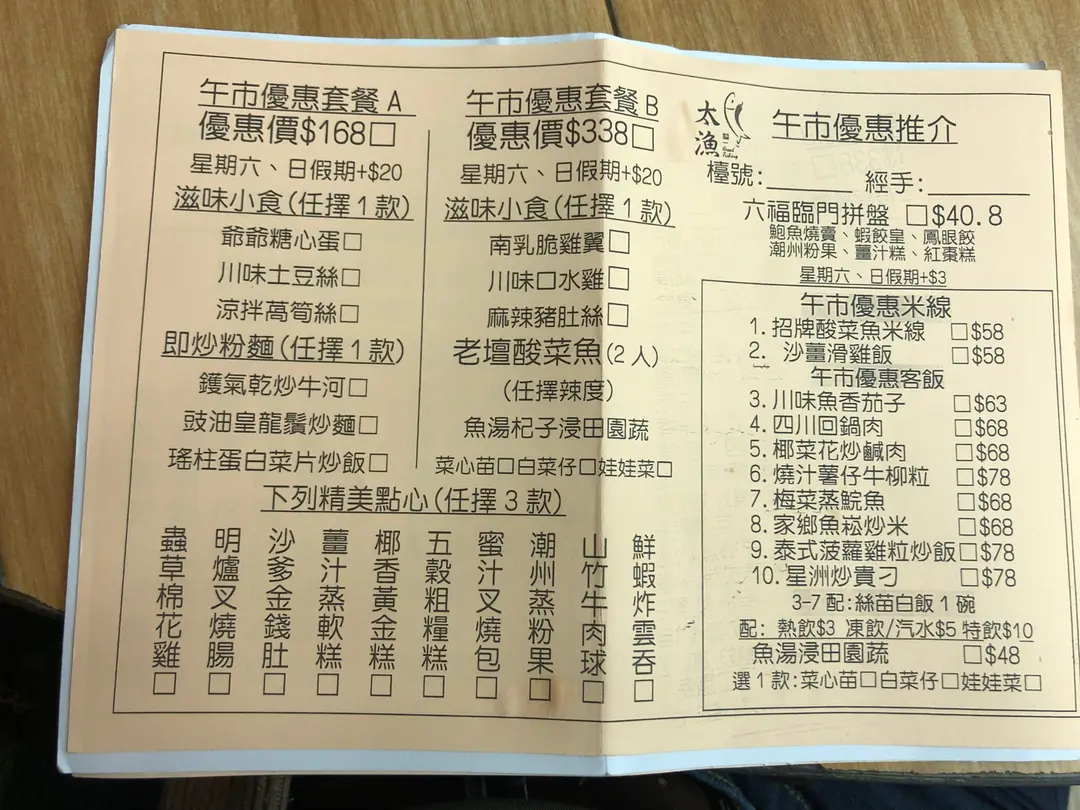 午市優惠套餐 A
優惠價$168□
星期六、日假期+$20
滋味小食(任擇1款)
爺爺糖心蛋□
川味土豆絲□
涼拌萵筍絲□
即炒粉麵(任擇1款)
鑊氣乾炒牛河□
豉油皇龍鬚炒麵□
瑤柱蛋白菜片炒飯□
午市優惠套餐 B
優惠價$338□
星期六、日假期+$20
滋味小食(任擇1款)
南乳脆雞翼□
川味口水雞□
麻辣豬肚絲□
老壇酸菜魚(2人)
(任擇辣度)
魚湯杞子浸田園蔬
菜心苗□白菜仔□娃娃菜□
下列精美點心(任擇3款)
蟲草棉花雞□
明爐叉燒腸□
沙爹金錢肚□
薑汁蒸軟糕□
椰香黃金糕□
五穀粗糧糕□
蜜汁叉燒包□
潮州蒸粉果□
山竹牛肉球□
鮮蝦炸雲吞□
太漁
午市優惠推介
檯號:______ 經手:________
六福臨門拼盤 □$40.8
鮑魚燒賣、蝦餃皇、鳳眼餃
潮州粉果、薑汁糕、紅棗糕
星期六、日假期+$3
午市優惠米線
1. 招牌酸菜魚米線 □$58
2. 沙薑滑雞飯 □$58
午市優惠客飯
3. 川味魚香茄子 □$63
4. 四川回鍋肉 □$68
5. 椰菜花炒鹹肉 □$68
6. 燒汁薯仔牛柳粒 □$78
7. 梅菜蒸鯇魚 □$68
8. 家鄉魚崧炒米 □$68
9. 泰式菠蘿雞粒炒飯□$78
10. 星洲炒貴刁 □$78
3-7 配:絲苗白飯 1 碗
配: 熱飲$3 凍飲/汽水$5 特飲$10
魚湯浸田園蔬 □$48
選1款:菜心苗□白菜仔□娃娃菜□